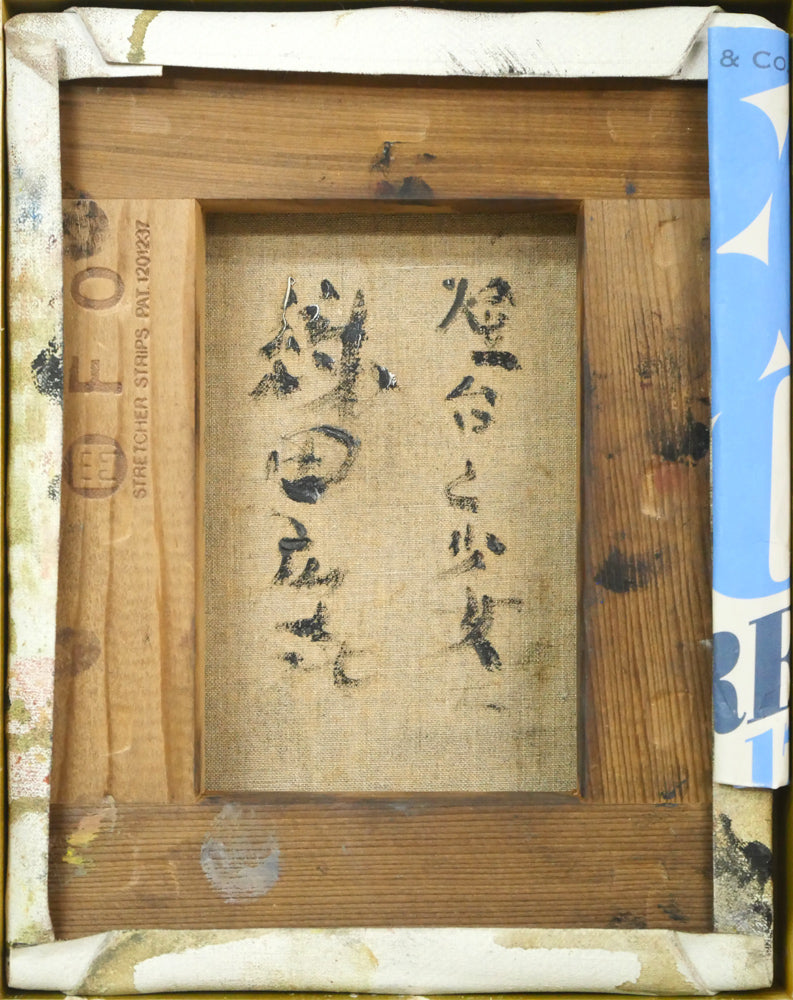 燈台と少女
織田広喜
F O
STRETCHER STRIPS PAT.1201237
& Co